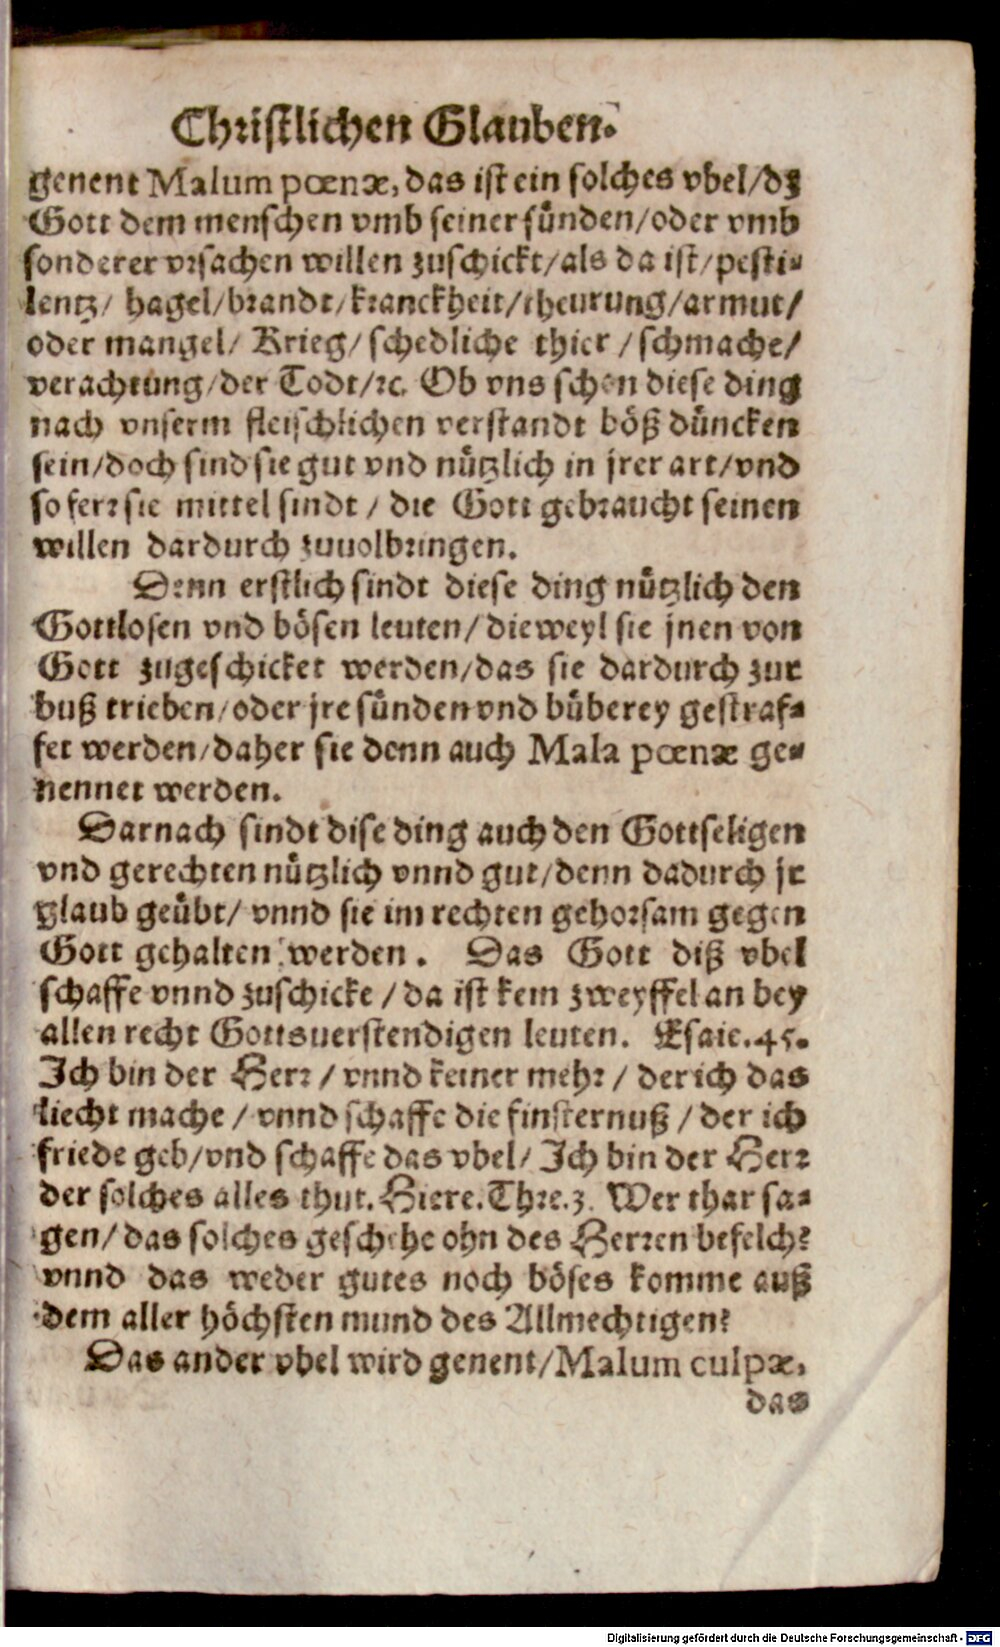 Christlichen Glauben.
genent Malum pœnæ, das ist ein solches vbel/dz
Gott dem menschen vmb seiner sünden/oder vmb
sonderer vrsachen willen zuschickt/als da ist/pesti-
lentz/ hagel/brandt/kranckheit/theurung/armut/
oder mangel/ Krieg/ schedliche thier / schmache/
verachtung/der Todt/ꝛc. Ob vns schon diese ding
nach vnserm fleischlichen verstandt böß düncken
sein/doch sind sie gut vnd nützlich in jrer art/vnd
so ferr sie mittel sindt / die Gott gebraucht seinen
willen dardurch zuuolbringen.
Denn erstlich sindt diese ding nützlich den
Gottlosen vnd bösen leuten/ dieweyl sie jnen von
Gott zugeschicket werden/das sie dardurch zur
buß trieben/oder jre sünden vnd büberey gestraf-
fet werden/daher sie denn auch Mala pœnæ ge-
nennet werden.
Darnach sindt dise ding auch den Gottseligen
vnd gerechten nützlich vnnd gut/denn dadurch jr
glaub geübt/ vnnd sie im rechten gehorsam gegen
Gott gehalten werden. Das Gott diß vbel
schaffe vnnd zuschicke / da ist kein zweyffel an bey
allen recht Gottsuerstendigen leuten. Esaie.45.
Ich bin der Herr / vnnd keiner mehr / der ich das
liecht mache / vnnd schaffe die finsternuß / der ich
friede geb/vnd schaffe das vbel/ Ich bin der Herr
der solches alles thut. Hiere.Thre.3. Wer thar sa-
gen/ das solches geschehe ohn des Herren befelch?
vnnd das weder gutes noch böses komme auß
dem aller höchsten mund des Allmechtigen?
Das ander vbel wird genent/Malum culpæ,
das
Digitalisierung gefördert durch die Deutsche Forschungsgemeinschaft - DFG